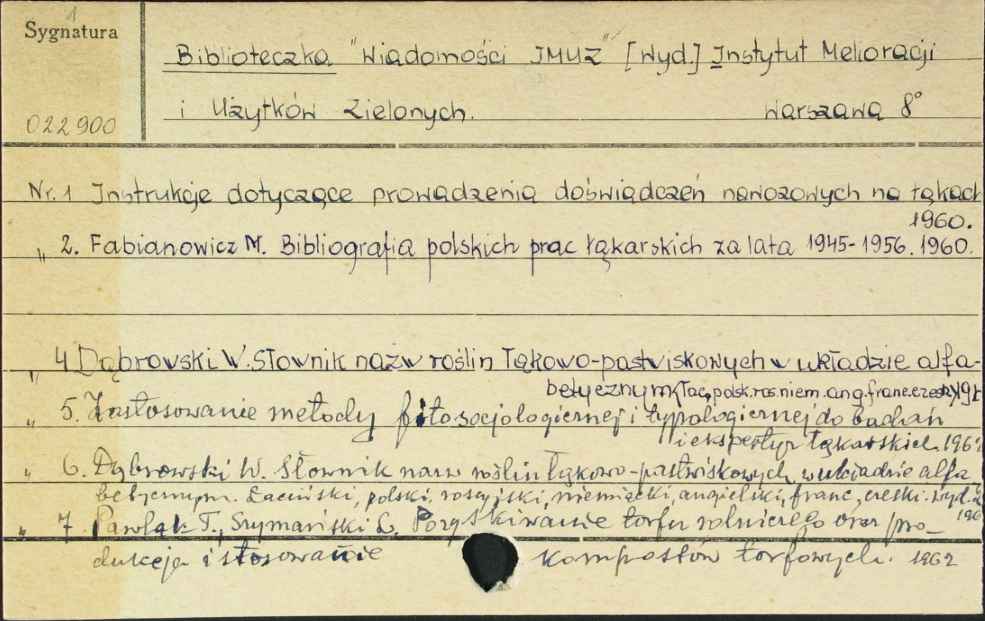 1
Sygnatura
Biblioteczka "Wiadomości IMUZ" [Wyd.] Instytut Melioracji
i Użytków Zielonych. Warszawa 8°
022900
Nr. 1 Instrukcje dotyczące prowadzenia doświadczeń nawozowych na łąkach
1960.
" 2. Fabianowicz M. Bibliografia polskich prac łąkarskich za lata 1945-1956. 1960.
" 4 Dąbrowski W. Słownik nazw roślin łąkowo-pastwiskowych w układzie alfa-
betycznym łac. polsk. ros. niem. ang. franc. czesk.
" 5. Zastosowanie metody fitosocjologicznej i typologicznej do badań
i ekspertyz łąkarskich. 196
" 6. Dąbrowski W. Słownik nazw roślin łąkowo-pastwiskowych w układzie alfa
betycznym. Łaciński, polski, rosyjski, niemiecki, angielski, franc, czeski. Wyd. 2
196
" 7. Pawlak T., Szymański L. Pozyskiwanie torfu rolniczego oraz pro-
dukcja i stosowanie kompostów torfowych. 1962